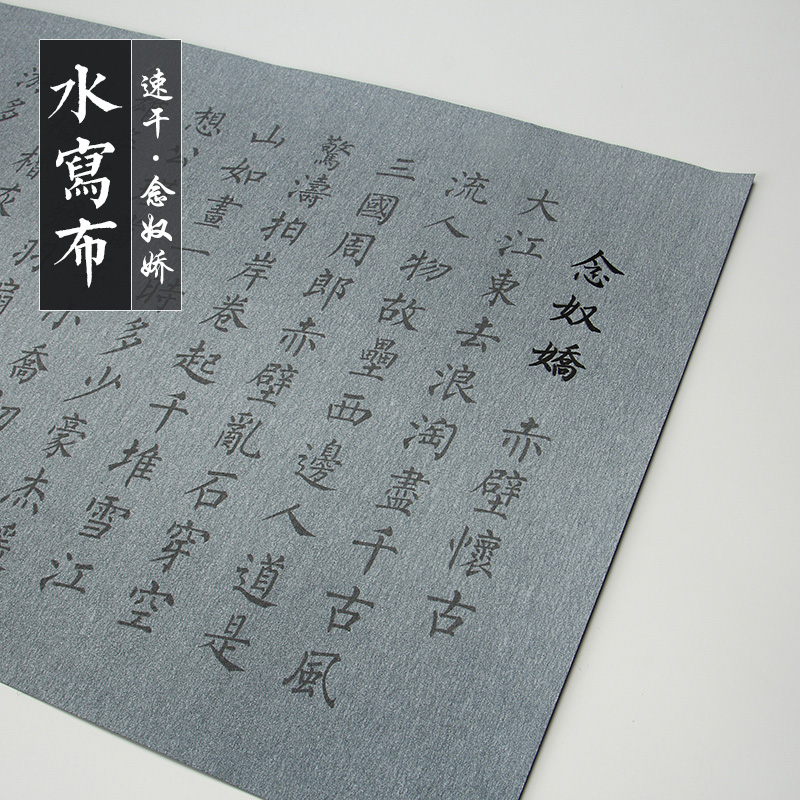 水寫布
速干·念奴娇
念奴嬌 赤壁懷古
大江東去浪淘盡千古風
流人物故壘西邊人道是
三國周郎赤壁亂石穿空
驚濤拍岸卷起千堆雪江
山如畫一時多少豪杰遙
想公
喬初